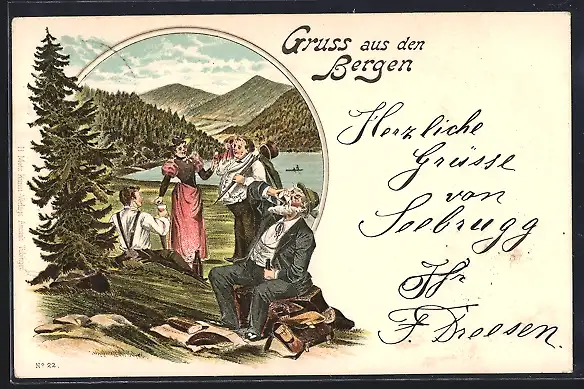 Gruss aus den
Bergen
Herzliche
Grüsse
von
Seebrugg
Ihr
F. Dreesen.
No 22.